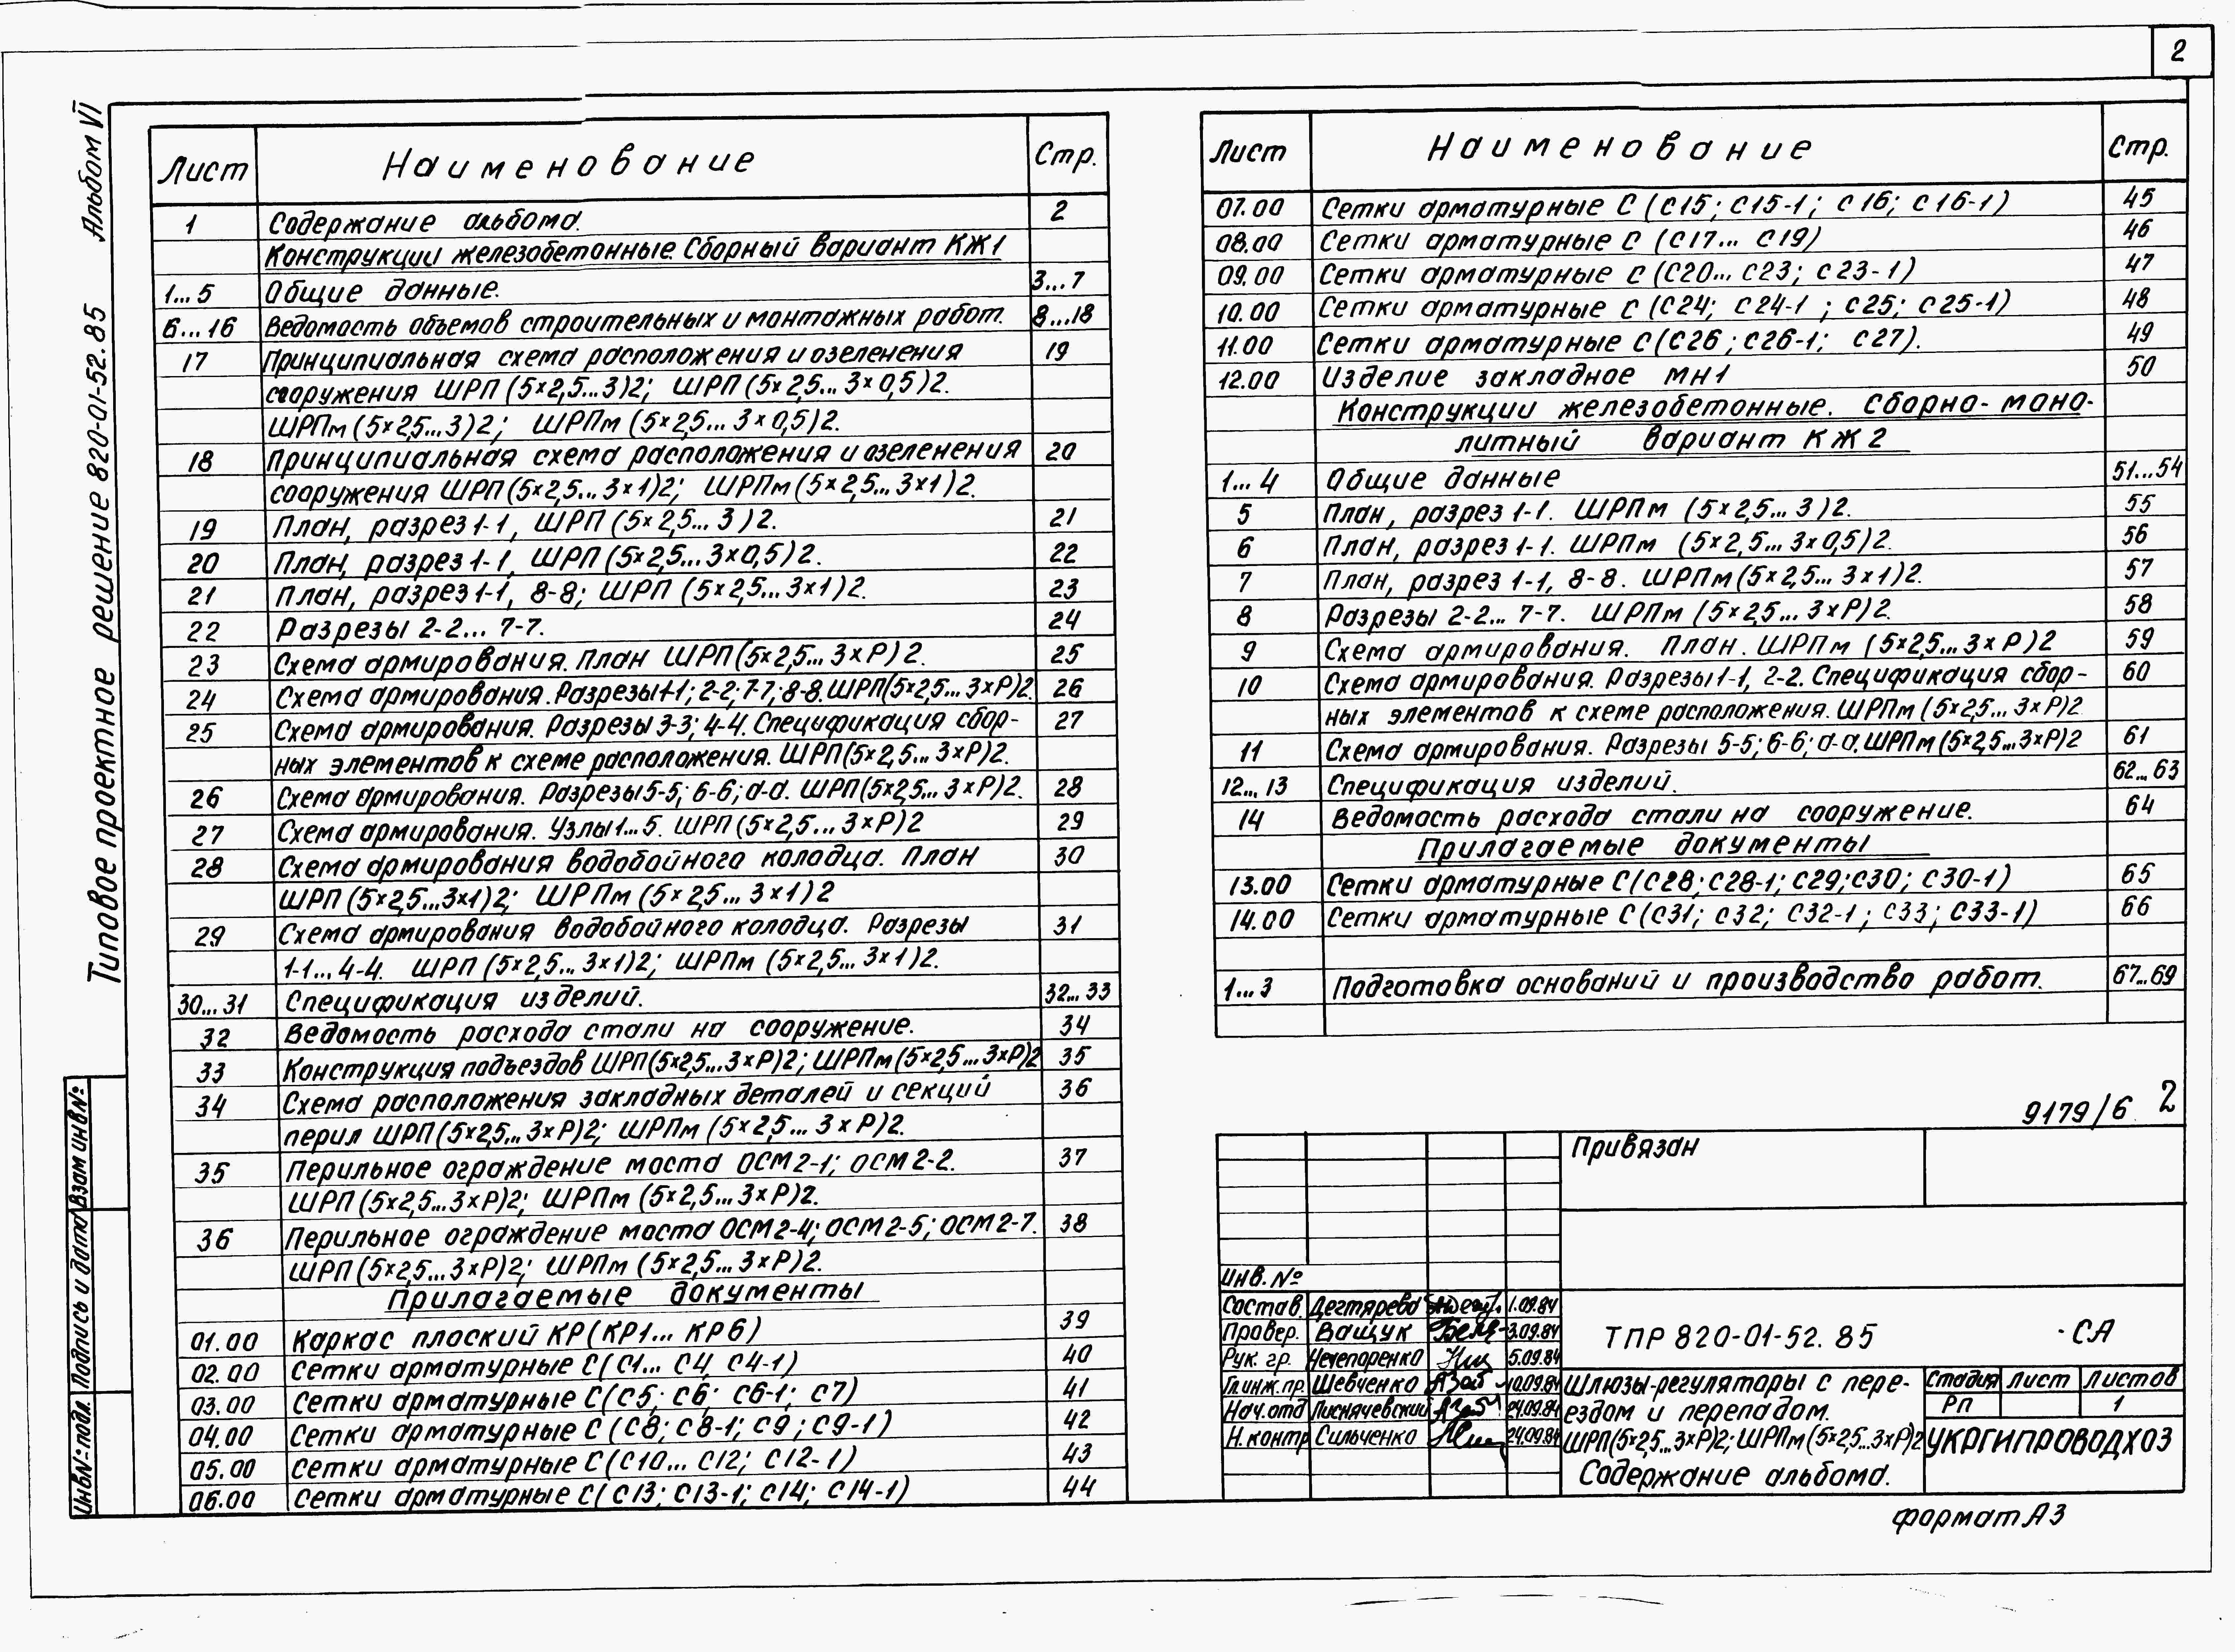 2
Типовое проектное решение 820-01-52.85 Альбом VI
Лист Наименование Стр.
1 Содержание альбома. 2
Конструкции железобетонные. Сборный вариант КЖ1
1...5 Общие данные. 3...7
6...16 Ведомость объемов строительных и монтажных работ. 8...18
17 Принципиальная схема расположения и озеленения 19
сооружения ШРП (5×2,5...3)2; ШРП (5×2,5...3×0,5)2.
ШРПм (5×2,5...3)2; ШРПм (5×2,5...3×0,5)2.
18 Принципиальная схема расположения и озеленения 20
сооружения ШРП (5×2,5...3×1)2; ШРПм (5×2,5...3×1)2.
19 План, разрез 1-1, ШРП (5×2,5...3)2. 21
20 План, разрез 1-1, ШРП (5×2,5...3×0,5)2. 22
21 План, разрез 1-1, 8-8; ШРП (5×2,5...3×1)2. 23
22 Разрезы 2-2... 7-7. 24
23 Схема армирования. План ШРП (5×2,5...3×Р)2. 25
24 Схема армирования. Разрезы 1-1; 2-2; 7-7; 8-8. ШРП (5×2,5...3×Р)2. 26
25 Схема армирования. Разрезы 3-3; 4-4. Спецификация сбор- 27
ных элементов к схеме расположения. ШРП (5×2,5...3×Р)2.
26 Схема армирования. Разрезы 5-5; 6-6; а-а. ШРП (5×2,5...3×Р)2. 28
27 Схема армирования. Узлы 1...5. ШРП (5×2,5...3×Р)2 29
28 Схема армирования водобойного колодца. План 30
ШРП (5×2,5...3×1)2; ШРПм (5×2,5...3×1)2
29 Схема армирования водобойного колодца. Разрезы 31
1-1...4-4. ШРП (5×2,5...3×1)2; ШРПм (5×2,5...3×1)2.
30...31 Спецификация изделий. 32...33
32 Ведомость расхода стали на сооружение. 34
33 Конструкция подъездов ШРП (5×2,5...3×Р)2; ШРПм (5×2,5...3×Р)2 35
34 Схема расположения закладных деталей и секций 36
перил ШРП (5×2,5...3×Р)2; ШРПм (5×2,5...3×Р)2.
35 Перильное ограждение моста ОСМ2-1; ОСМ2-2. 37
ШРП (5×2,5...3×Р)2; ШРПм (5×2,5...3×Р)2.
36 Перильное ограждение моста ОСМ2-4; ОСМ2-5; ОСМ2-7. 38
ШРП (5×2,5...3×Р)2; ШРПм (5×2,5...3×Р)2.
Прилагаемые документы
01.00 Каркас плоский КР (КР1... КР6) 39
02.00 Сетки арматурные С (С1... С4, С4-1) 40
03.00 Сетки арматурные С (С5; С6; С6-1; С7) 41
04.00 Сетки арматурные С (С8; С8-1; С9; С9-1) 42
05.00 Сетки арматурные С (С10... С12; С12-1) 43
06.00 Сетки арматурные С (С13; С13-1; С14; С14-1) 44
Лист Наименование Стр.
07.00 Сетки арматурные С (С15; С15-1; С16; С16-1) 45
08.00 Сетки арматурные С (С17... С19) 46
09.00 Сетки арматурные С (С20... С23; С23-1) 47
10.00 Сетки арматурные С (С24; С24-1; С25; С25-1) 48
11.00 Сетки арматурные С (С26; С26-1; С27). 49
12.00 Изделие закладное МН1 50
Конструкции железобетонные. Сборно-моно-
литный вариант КЖ2
1...4 Общие данные 51...54
5 План, разрез 1-1. ШРПм (5×2,5...3)2. 55
6 План, разрез 1-1. ШРПм (5×2,5...3×0,5)2. 56
7 План, разрез 1-1, 8-8. ШРПм (5×2,5...3×1)2. 57
8 Разрезы 2-2... 7-7. ШРПм (5×2,5...3×Р)2. 58
9 Схема армирования. План. ШРПм (5×2,5...3×Р)2 59
10 Схема армирования. Разрезы 1-1, 2-2. Спецификация сбор- 60
ных элементов к схеме расположения. ШРПм (5×2,5...3×Р)2.
11 Схема армирования. Разрезы 5-5; 6-6; а-а. ШРПм (5×2,5...3×Р)2 61
12...13 Спецификация изделий. 62...63
14 Ведомость расхода стали на сооружение. 64
Прилагаемые документы
13.00 Сетки арматурные С (С28; С28-1; С29; С30; С30-1) 65
14.00 Сетки арматурные С (С31; С32; С32-1; С33; С33-1) 66
1...3 Подготовка оснований и производство работ. 67...69
9179/6 2
Привязан
Инв. №
Состав. Дегтярева 1.09.84
Провер. Ващук 3.09.84
Рук. гр. Нечепоренко 5.09.84
Гл.инж.пр. Шевченко 10.09.84
Нач.отд Лиснячевский 24.09.84
Н.контр Сильченко 24.09.84
ТПР 820-01-52.85 -СА
Шлюзы-регуляторы с пере-
ездом и перепадом.
ШРП (5×2,5...3×Р)2; ШРПм (5×2,5...3×Р)2
Содержание альбома.
Стадия Лист Листов
РП 1
УКРГИПРОВОДХОЗ
Формат А3
Инв № подл. Подпись и дата Взам инв №